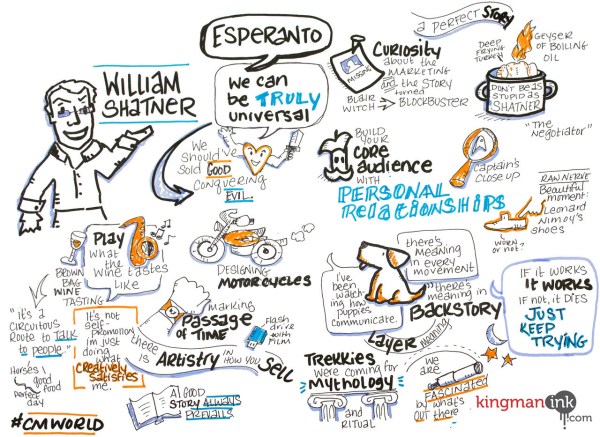 WILLIAM
SHATNER
ESPERANTO
We can
be TRULY
universal
We
Should've
Sold GOOD
CONQUERING
EVIL.
MISSING
CURIOSITY
about the
MARKETING
and the STORY
turned
BLAIR
WITCH → BLOCKBUSTER
a PERFECT STORY
DEEP
FRYING
TURKEY
GEYSER
OF BOILING
OIL
DON'T BE AS
STUPID AS
SHATNER
"The
Negotiator"
BUILD
YOUR
CORE
audience
WITH
PERSONAL
RELATIONSHIPS
Captain's
Close up
RAW NERVE
Beautiful
moment:
Leonard
Nimoy's
Shoes
WORN
or not?
Play
What
the
Wine tastes
Like
BROWN
BAG
WINE
TASTING
DESIGNING
MOTORCYCLES
"it's a
CIRCUITOUS
Route to Talk
to people."
It's not
self-
PROMOTION
i'm just
doing
what
Creatively
Satisfies
me.
Horses!
good
food
perfect
day
#CMWORLD
marking
PASSAGE
OF TIME
flash
drive
with
FILM
there is
ARTISTRY IN HOW YOU SELL
A GOOD
STORY ALWAYS
PREVAILS
I've
been
watch-
ing how
puppies
communicate.
there's
MEANING
in every
movement
"there's
meaning in
BACKSTORY
LAYER meaning
TREKKIES
WERE COMING FOR
MYTHOLOGY
and
RITUAL
We
are
FASCINATED
by what's
OUT there
IF IT WORKS
IT WORKS
if not, it DIES
JUST
KEEP
TRYING
kingman ink
.com